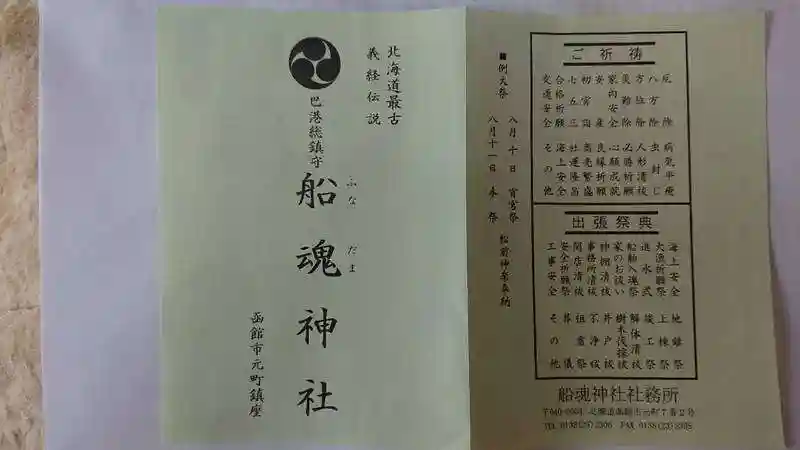 北海道最古
義経伝説
巴港総鎮守
船魂神社
ふなだま
函館市元町鎮座
ご祈祷
厄除 病気平癒
八方除 虫封じ
方位除 人形清祓
災難除 必勝祈願
家内安全 心願成就
安産 良縁祈願
初宮詣 商売繁盛
七五三 社運隆昌
合格祈願 海上安全
交通安全 その他
出張祭典
海上安全 地鎮祭
大漁祈願祭 上棟祭
進水式 竣工祭
船舶入魂祭 解体清祓
家のお祓い 樹木伐採祓
神棚清祓 井戸祓
事務所清祓 不浄祓
開店清祓 祖霊祭
安全祈願祭 葬儀
工事安全 その他
■例大祭
八月十日 宵宮祭
八月十一日 本祭 松前神楽奉納
船魂神社社務所
北海道函館市元町7番2号